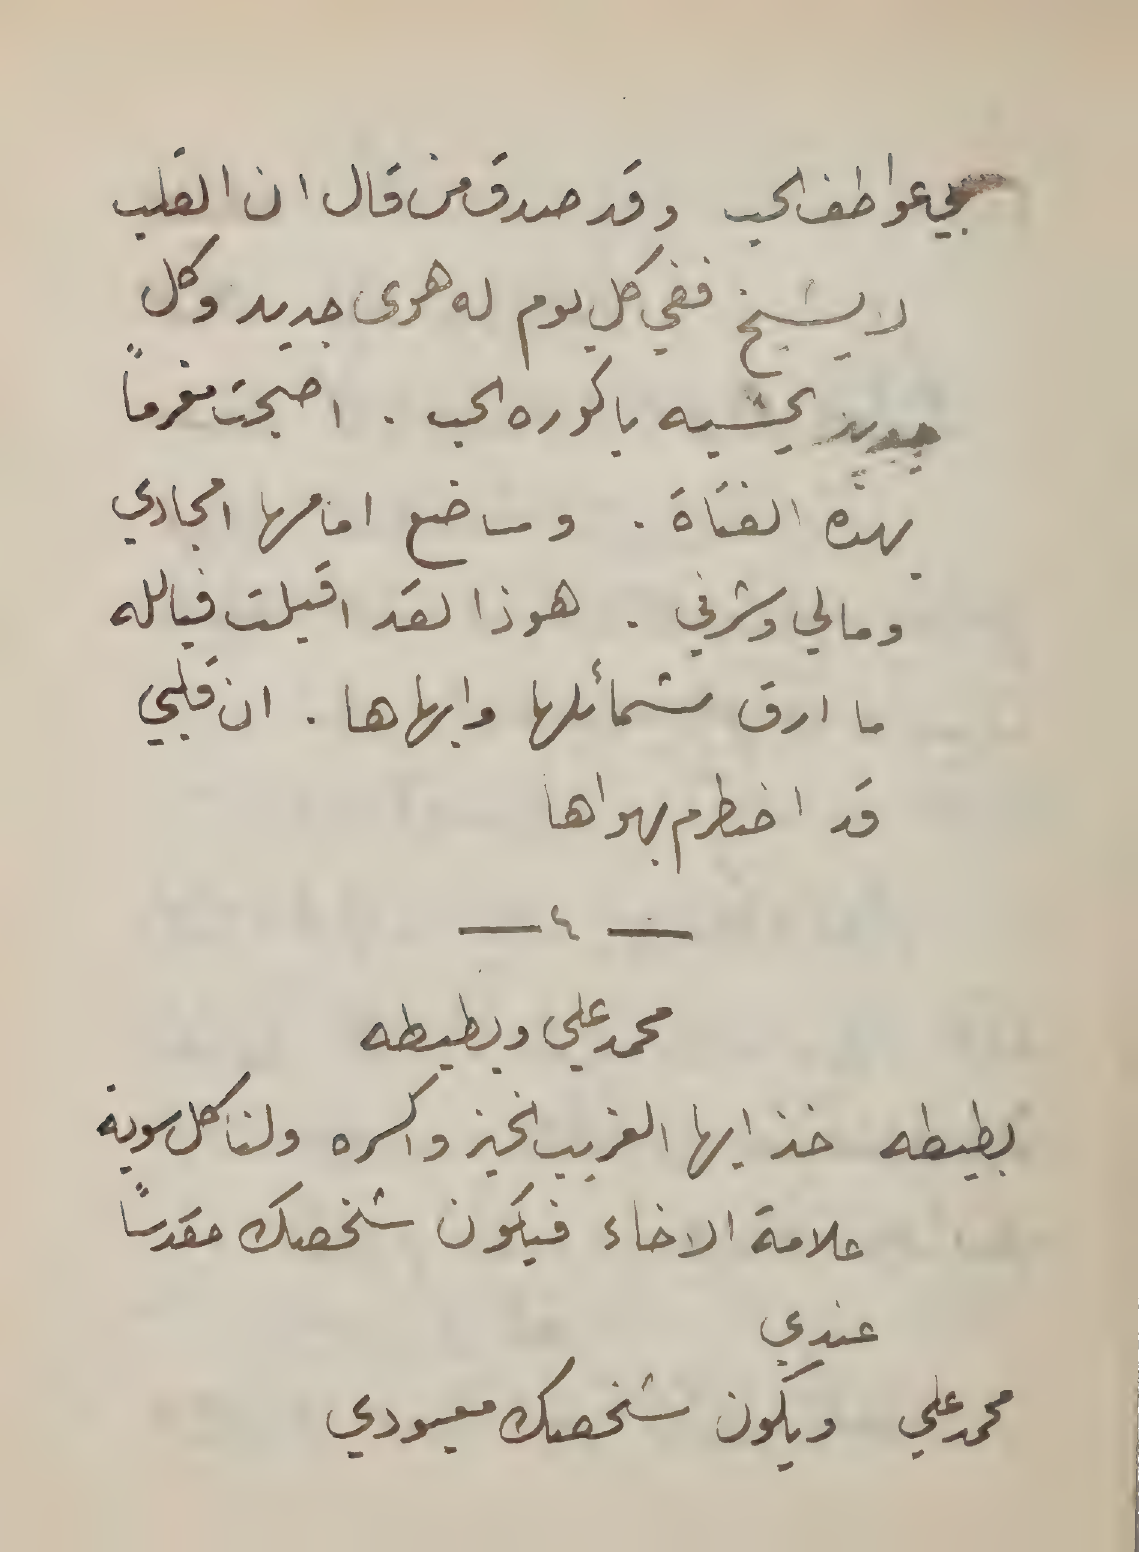 بي عواطف الحب وقد صدق من قال ان القلب
لا يشيخ ففي كل يوم له هوى جديد وكل
جديد يحسبه باكوره الحب . اصبحت مغرماً
بهذه الفتاة . وساضع امامها امجادي
ومالي وشرفي . هوذا لقد اقبلت فيالله
ما ارق شمائلها وابهاها . ان قلبي
قد اضطرم بهواها
— ٤ —
محمد علي وبطيطه
بطيطه خذ ايها الغريب الخبز واكسره ولناكل سوية
علامة الاخاء فيكون شخصك مقدساً
عندي
محمد علي ويكون شخصك معبودي